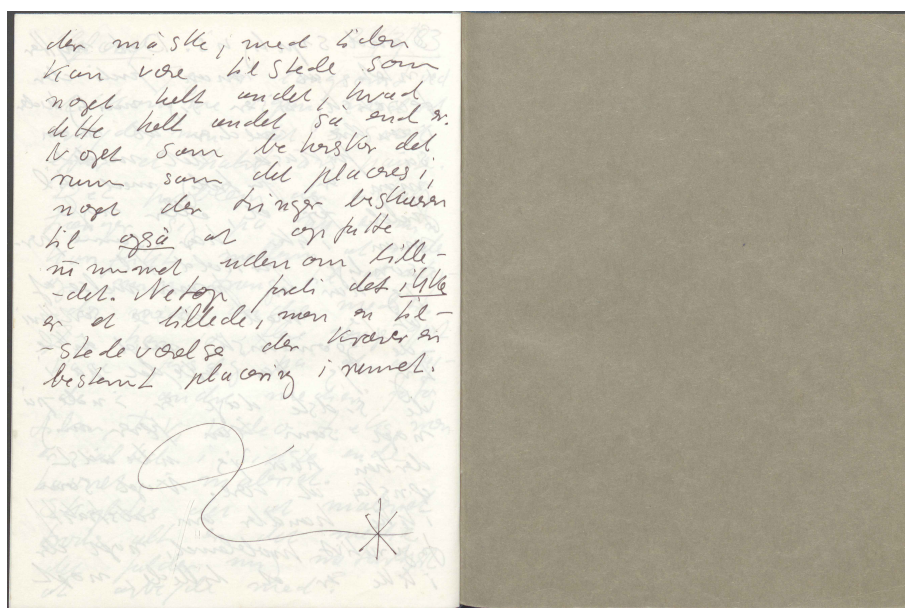 der måske, med tiden
kan være til stede som
noget helt andet, hvad
dette helt andet så end er.
Noget som behersker det
rum som det placeres i,
noget der tvinger beskueren
til også at opfatte
rummet uden om bille-
-det. Netop fordi det ikke
er et billede, men en til-
-stedeværelse der kræver en
bestemt placering i rummet.